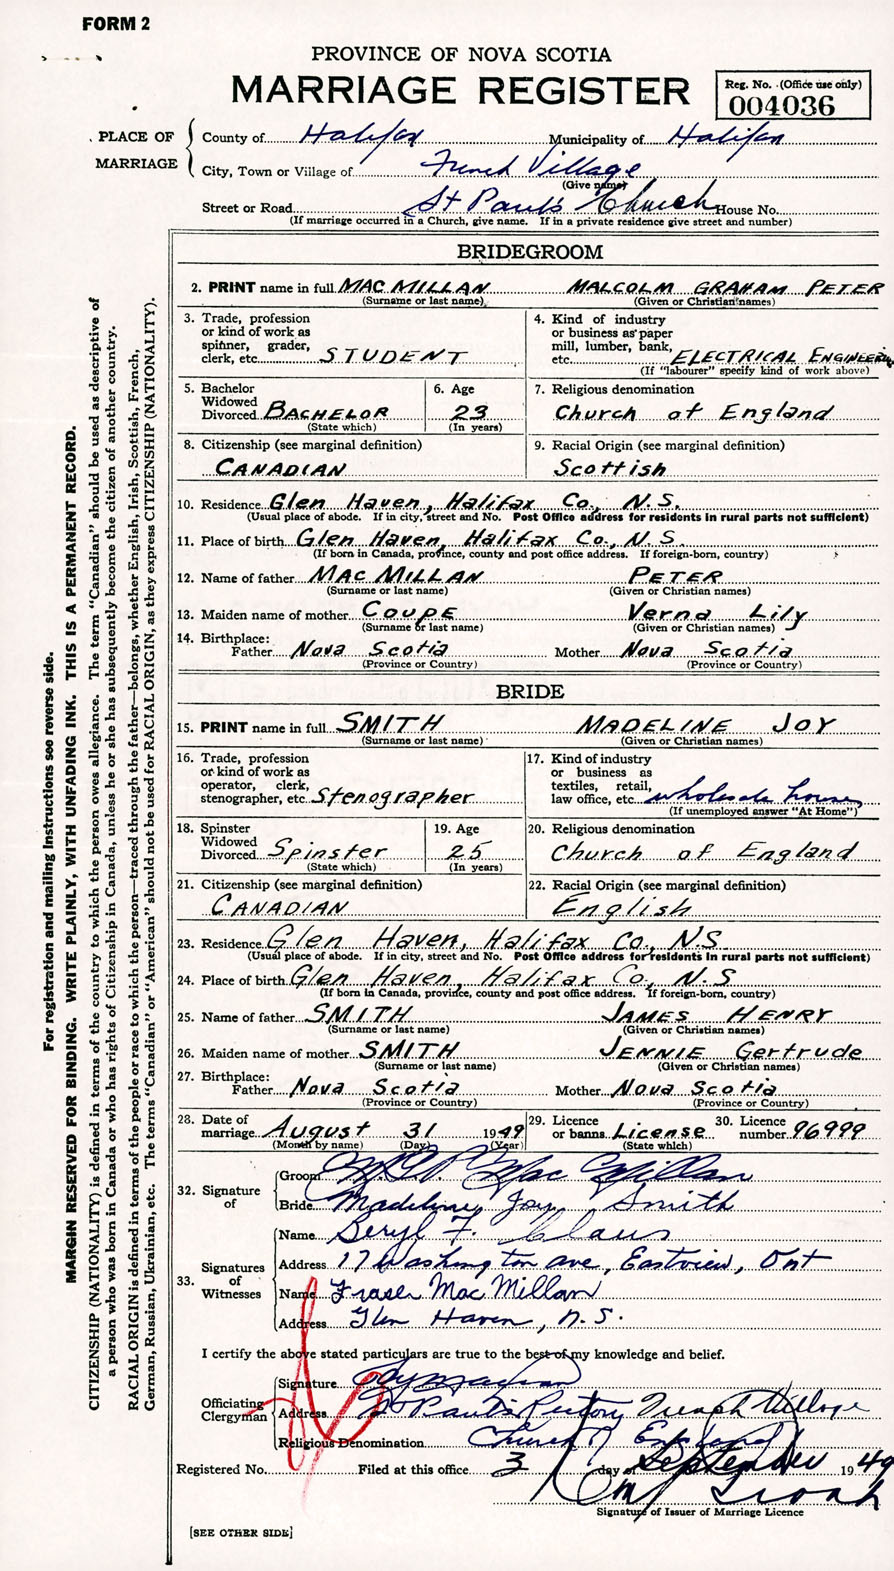 FORM 2
PROVINCE OF NOVA SCOTIA
MARRIAGE REGISTER
Reg. No. (Office use only)
004036
PLACE OF MARRIAGE
County of Halifax Municipality of Halifax
City, Town or Village of French Village
(Give name)
Street or Road St Paul's Church House No.
(If marriage occurred in a Church, give name. If in a private residence give street and number)
BRIDEGROOM
2. PRINT name in full MAC MILLAN MALCOLM GRAHAM PETER
(Surname or last name) (Given or Christian names)
3. Trade, profession or kind of work as spinner, grader, clerk, etc. STUDENT
4. Kind of industry or business as paper mill, lumber, bank, etc. ELECTRICAL ENGINEERING
(If "labourer" specify kind of work above)
5. Bachelor Widowed Divorced BACHELOR
(State which)
6. Age 23
(In years)
7. Religious denomination
Church of England
8. Citizenship (see marginal definition)
CANADIAN
9. Racial Origin (see marginal definition)
Scottish
10. Residence Glen Haven, Halifax Co., N.S.
(Usual place of abode. If in city, street and No. Post Office address for residents in rural parts not sufficient)
11. Place of birth Glen Haven, Halifax Co., N.S.
(If born in Canada, province, county and post office address. If foreign-born, country)
12. Name of father MAC MILLAN PETER
(Surname or last name) (Given or Christian names)
13. Maiden name of mother COUPE Verna Lily
(Surname or last name) (Given or Christian names)
14. Birthplace:
Father Nova Scotia Mother Nova Scotia
(Province or Country) (Province or Country)
BRIDE
15. PRINT name in full SMITH MADELINE JOY
(Surname or last name) (Given or Christian names)
16. Trade, profession or kind of work as operator, clerk, stenographer, etc. Stenographer
17. Kind of industry or business as textiles, retail, law office, etc. wholesale house
(If unemployed answer "At Home")
18. Spinster Widowed Divorced Spinster
(State which)
19. Age 25
(In years)
20. Religious denomination
Church of England
21. Citizenship (see marginal definition)
CANADIAN
22. Racial Origin (see marginal definition)
English
23. Residence Glen Haven, Halifax Co., N.S
(Usual place of abode. If in city, street and No. Post Office address for residents in rural parts not sufficient)
24. Place of birth Glen Haven, Halifax Co., N.S
(If born in Canada, province, county and post office address. If foreign-born, country)
25. Name of father SMITH JAMES HENRY
(Surname or last name) (Given or Christian names)
26. Maiden name of mother SMITH JENNIE Gertrude
(Surname or last name) (Given or Christian names)
27. Birthplace:
Father Nova Scotia Mother Nova Scotia
(Province or Country) (Province or Country)
28. Date of marriage August 31 1949
(Month by name) (Day) (Year)
29. Licence or banns License
(State which)
30. Licence number 96999
32. Signature of
Groom M.G.P. Mac Millan
Bride Madeline Joy Smith
33. Signatures of Witnesses
Name Beryl F. Claus
Address 17 Washington ave, Eastview, Ont
Name Fraser MacMillan
Address Glen Haven, N.S.
I certify the above stated particulars are true to the best of my knowledge and belief.
Officiating Clergyman
Signature
Address St Paul's Rectory French Village
Religious Denomination Church of England
Registered No. Filed at this office 3 day of September 1949
Signature of Issuer of Marriage Licence
[SEE OTHER SIDE]
For registration and mailing instructions see reverse side.
MARGIN RESERVED FOR BINDING. WRITE PLAINLY, WITH UNFADING INK. THIS IS A PERMANENT RECORD.
CITIZENSHIP (NATIONALITY) is defined in terms of the country to which the person owes allegiance. The term "Canadian" should be used as descriptive of
a person who was born in Canada or who has rights of Citizenship in Canada, unless he or she has subsequently become the citizen of another country.
RACIAL ORIGIN is defined in terms of the people or race to which the person—traced through the father—belongs, whether English, Irish, Scottish, French,
German, Russian, Ukrainian, etc. The terms "Canadian" or "American" should not be used for RACIAL ORIGIN, as they express CITIZENSHIP (NATIONALITY).